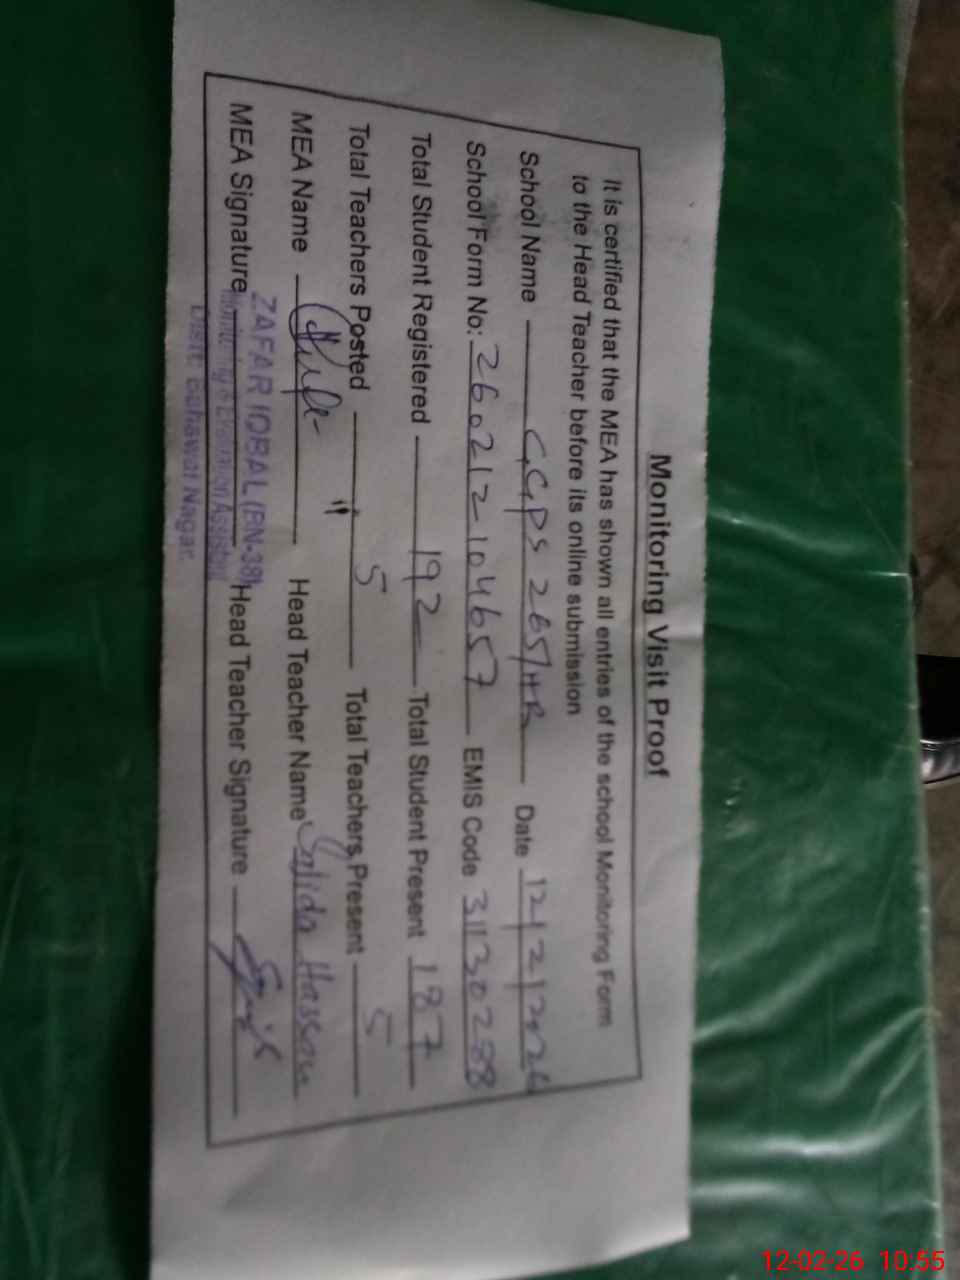 Monitoring Visit Proof
It is certified that the MEA has shown all entries of the school Monitoring Form
to the Head Teacher before its online submission
School Name GGPS 265/HR Date 12/2/2026
School Form No: 260212104657 EMIS Code 31130288
Total Student Registered 192 Total Student Present 187
Total Teachers Posted 5 Total Teachers Present 5
MEA Name Head Teacher Name Sajida Hassan
MEA Signature Head Teacher Signature
ZAFAR IQBAL (BN-38)
Monitoring & Evaluation Assistant
Distt: Bahawal Nagar.
12-02-26 10:55